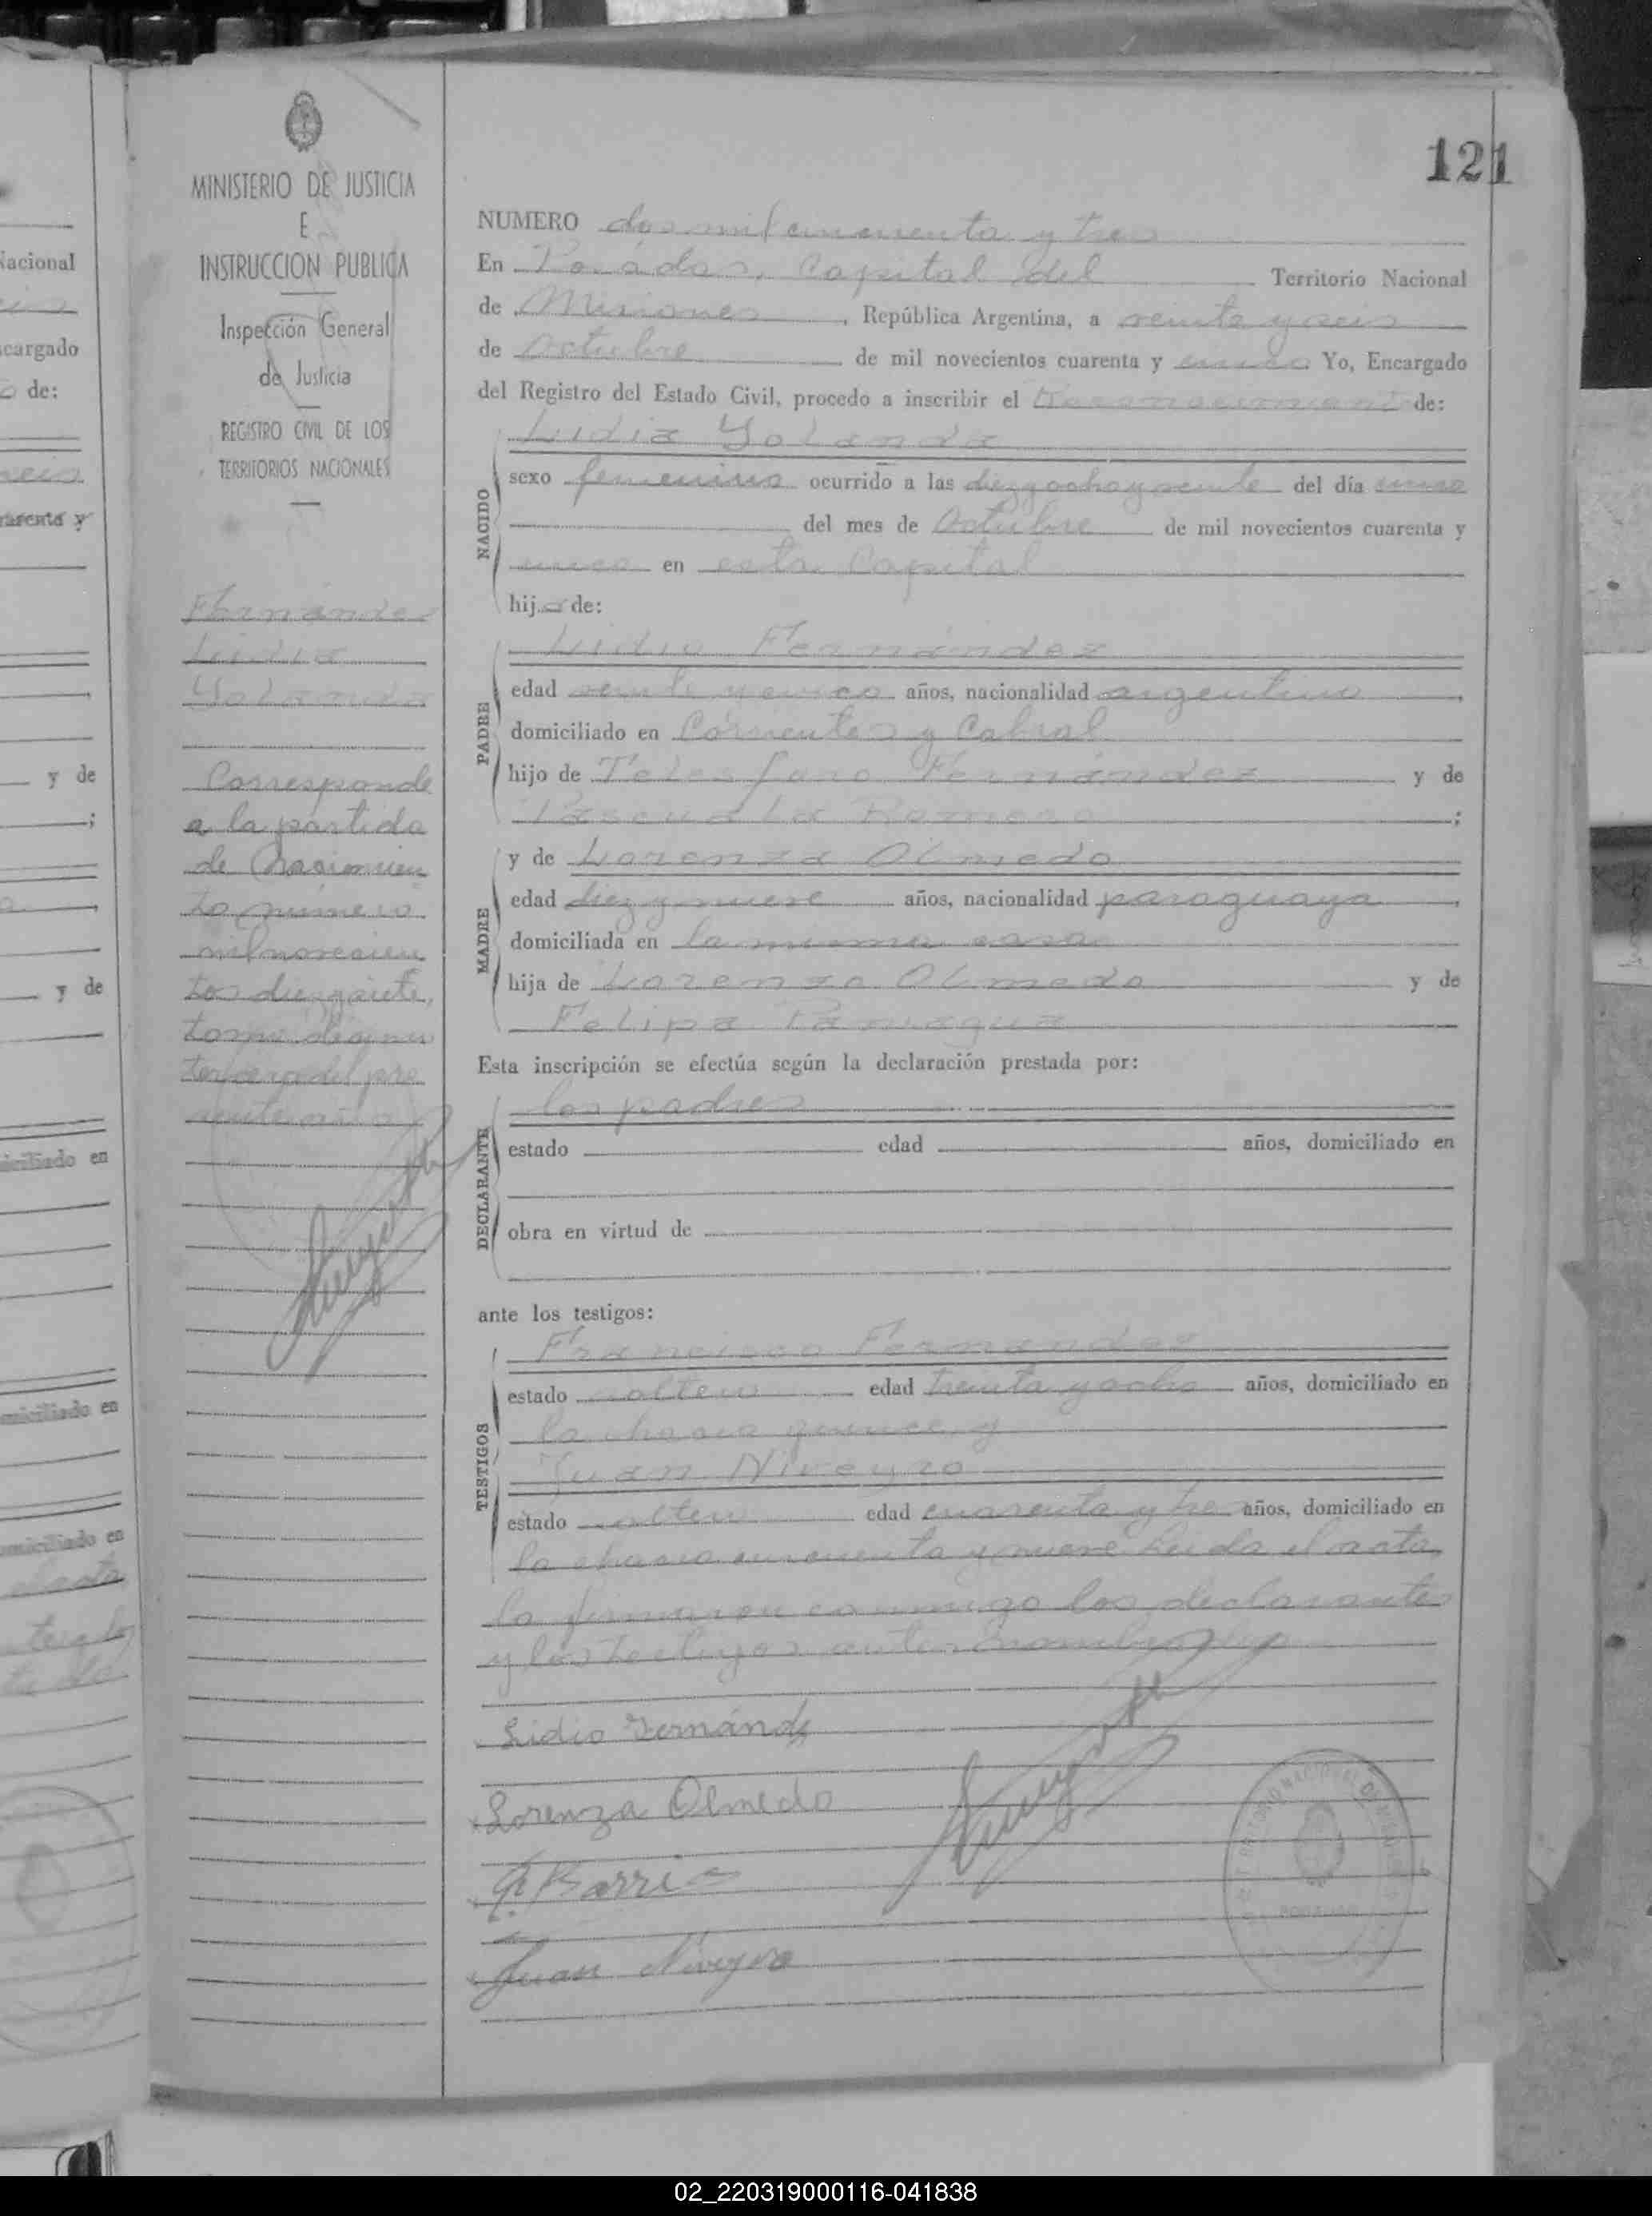 121
MINISTERIO DE JUSTICIA
E
INSTRUCCION PUBLICA
Inspección General
de Justicia
REGISTRO CIVIL DE LOS
TERRITORIOS NACIONALES
Fernández
Lidia
Yolanda
Corresponde
a la partida
de Nacimien
to número
mil novecien
tos diez y siete,
tomo décimo
tercero del pre
sente año
NUMERO dos mil cincuenta y tres
En Posadas, Capital del Territorio Nacional
de Misiones, República Argentina, a veinte y seis
de Octubre de mil novecientos cuarenta y Yo, Encargado
del Registro del Estado Civil, procedo a inscribir el Reconocimiento de:
NACIDO
Lidia Yolanda
sexo femenino ocurrido a las diez y ocho y veinte del día
del mes de Octubre de mil novecientos cuarenta y
en esta Capital
hija de:
PADRE
Lidio Fernández
edad veinte y cinco años, nacionalidad argentino,
domiciliado en Corrientes y Cabral
hijo de Telesforo Fernández y de
Pascuala Romero;
MADRE
y de Lorenza Olmedo
edad diez y nueve años, nacionalidad paraguaya,
domiciliada en la misma casa
hija de Lorenzo Olmedo y de
Felipa Paniagua
Esta inscripción se efectúa según la declaración prestada por:
DECLARANTE
los padres
estado edad años, domiciliado en
obra en virtud de
ante los testigos:
TESTIGOS
Francisco Fernandez
estado soltero edad treinta y ocho años, domiciliado en
la chacra quince y
Juan Niveyro
estado soltero edad cuarenta y tres años, domiciliado en
la chacra cincuenta y nueve Leída el acta
la firmaron conmigo los declarantes
y los testigos antes nombrados
Lidio Fernández
Lorenza Olmedo
Juan Niveyro
Nacional
cargado
de:
y de
y de
domiciliado en
domiciliado en
domiciliado en
02_220319000116-041838